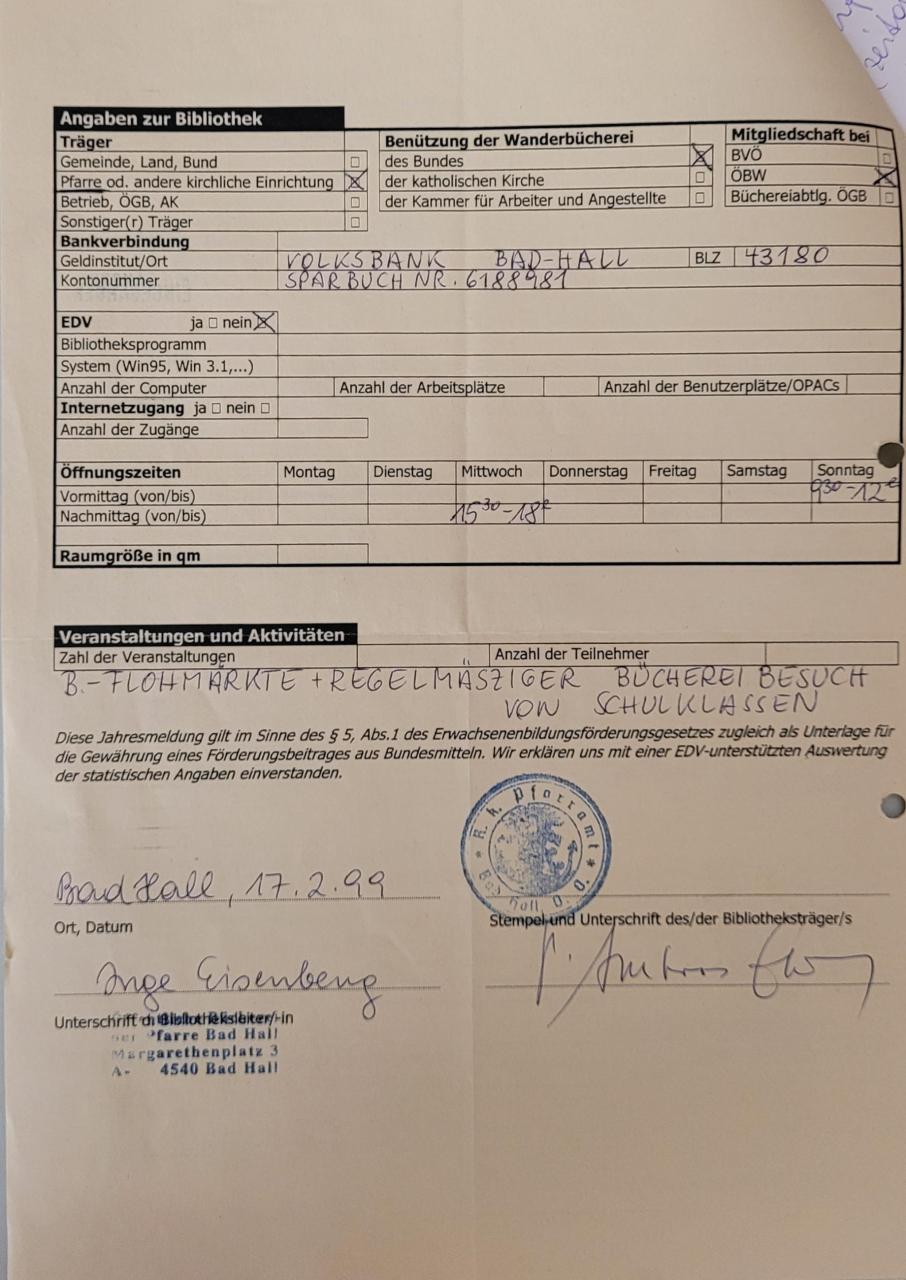 Angaben zur Bibliothek
Träger
Gemeinde, Land, Bund ☐
Pfarre od. andere kirchliche Einrichtung ☒
Betrieb, ÖGB, AK ☐
Sonstiger(r) Träger ☐
Benützung der Wanderbücherei
des Bundes ☒
der katholischen Kirche ☐
der Kammer für Arbeiter und Angestellte ☐
Mitgliedschaft bei
BVÖ ☐
ÖBW ☒
Büchereiabtlg. ÖGB ☐
Bankverbindung
Geldinstitut/Ort VOLKSBANK BAD-HALL BLZ 43180
Kontonummer SPARBUCH NR. 6188981
EDV ja ☐ nein ☒
Bibliotheksprogramm
System (Win95, Win 3.1,...)
Anzahl der Computer Anzahl der Arbeitsplätze Anzahl der Benutzerplätze/OPACs
Internetzugang ja ☐ nein ☐
Anzahl der Zugänge
Öffnungszeiten Montag Dienstag Mittwoch Donnerstag Freitag Samstag Sonntag
Vormittag (von/bis) 930-12
Nachmittag (von/bis) 1530-18
Raumgröße in qm
Veranstaltungen und Aktivitäten
Zahl der Veranstaltungen Anzahl der Teilnehmer
B.-FLOHMÄRKTE + REGELMÄSZIGER BÜCHEREI BESUCH
VON SCHULKLASSEN
Diese Jahresmeldung gilt im Sinne des § 5, Abs.1 des Erwachsenenbildungsförderungsgesetzes zugleich als Unterlage für
die Gewährung eines Förderungsbeitrages aus Bundesmitteln. Wir erklären uns mit einer EDV-unterstützten Auswertung
der statistischen Angaben einverstanden.
R. k. Pfarramt * Bad Hall, O.Ö. *
Bad Hall, 17.2.99
Ort, Datum
Stempel und Unterschrift des/der Bibliotheksträger/s
Inge Eisenberg
Unterschrift d. Bibliotheksleiter/-in
Pfarre Bad Hall
Margarethenplatz 3
A- 4540 Bad Hall